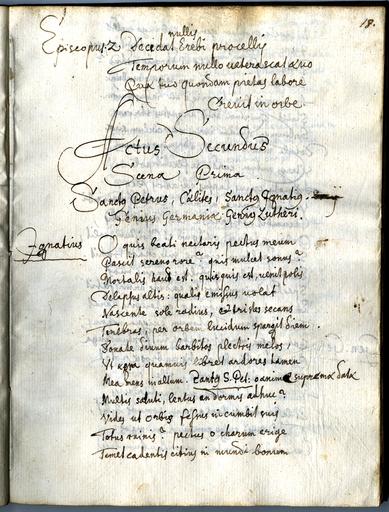 18.
nullis
Episcopus. 2 Decedat Erebi procellis
Temporum nullo veterascat ævo
Quæ tuo quondam pietas labore
Crevit in orbe
Actus Secundus
Scena Prima.
Sanctus Petrus, Cælites, Sanctus Ignatius.
Genius Germaniæ Georg Lutheri.
Ignatius O quis beati nectaris pectus meum
Pascit sereno rore? quis mulcet sonus?
Mortalis haud est, quisquis est, venit polis
Delapsus altis: qualis emissus volat
Nascente sole radius, et tristes secans
Tenebras, per orbem lucidum spargit diem.
Sonate divum barbitos plectris melos,
Ut quamvis libret ardores tamen
Mea mens in altum. Sanctus S. Pet: o anima suprema data
Multis saluti, lentus an dormis adhuc?
Vides ut orbis fessus incumbit suis
Totus ruinis? pectus o charum erige
Timet cadentis citius ni mundi bonum